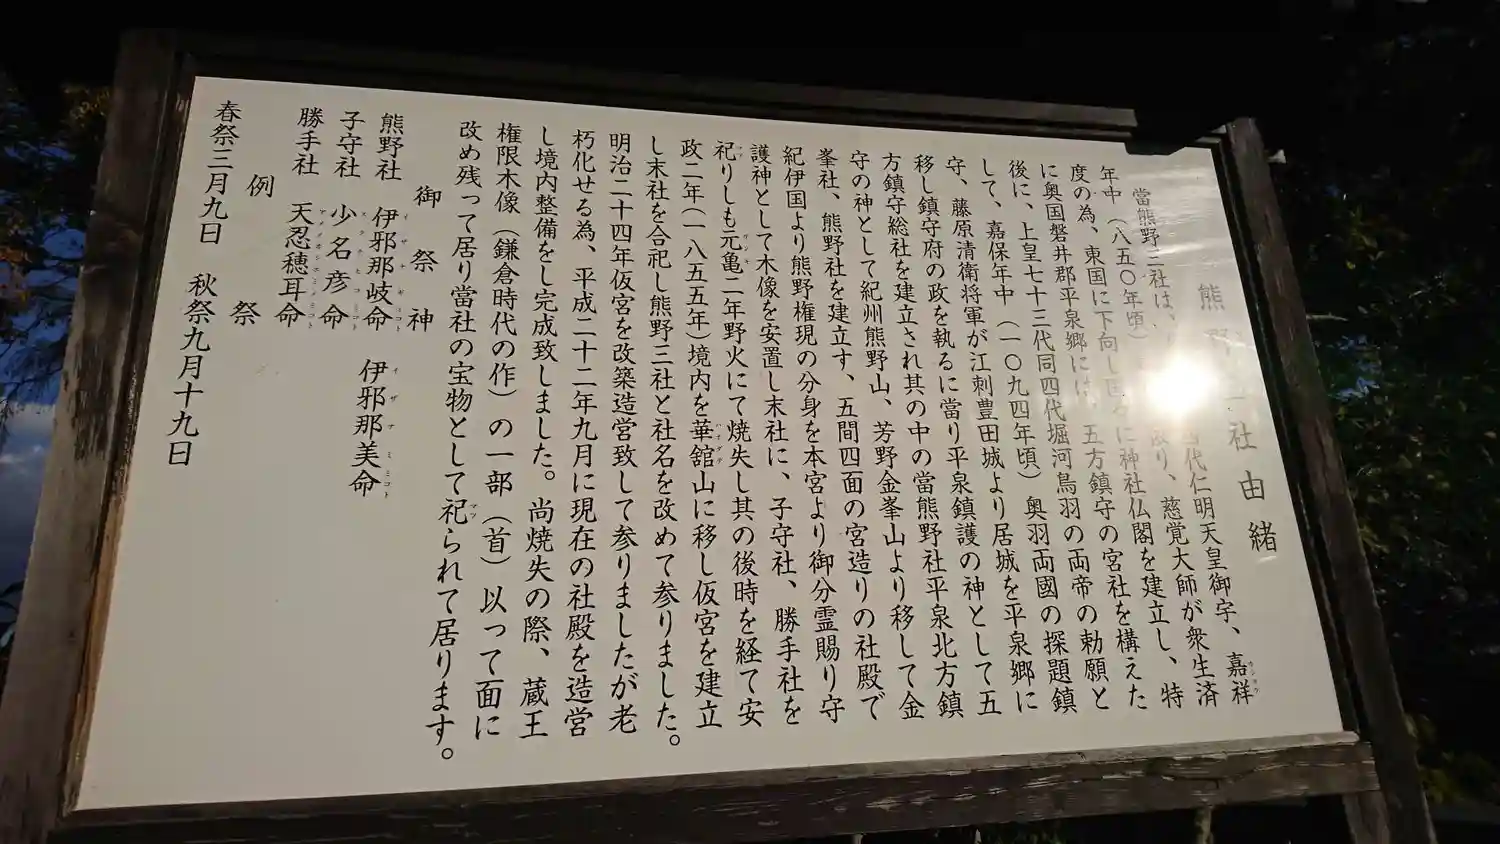 熊野三社由緒
當熊野三社は、 代仁明天皇御宇、嘉祥
年中(八五〇年頃) 慈覚大師が衆生済
度の為、東国に下向し 神社仏閣を建立し、特
に奥国磐井郡平泉郷には、五方鎮守の宮社を構えた
後に、上皇七十三代同四代堀河鳥羽の両帝の勅願と
して、嘉保年中(一〇九四年頃)奥羽両國の探題鎮
守、藤原清衛将軍が江刺豊田城より居城を平泉郷に
移し鎮守府の政を執るに當り平泉鎮護の神として五
方鎮守総社を建立され其の中の當熊野社平泉北方鎮
守の神として紀州熊野山、芳野金峯山より移して金
峯社、熊野社を建立す、五間四面の宮造りの社殿で
紀伊国より熊野権現の分身を本宮より御分霊賜り守
護神として木像を安置し末社に、子守社、勝手社を
祀りしも元亀二年野火にて焼失し其の後時を経て安
政二年(一八五五年)境内を華舘山に移し仮宮を建立
し末社を合祀し熊野三社と社名を改めて参りました。
明治二十四年仮宮を改築造営致して参りましたが老
朽化せる為、平成二十二年九月に現在の社殿を造営
し境内整備をし完成致しました。尚焼失の際、蔵王
権限木像(鎌倉時代の作)の一部(首)以って面に
改め残って居り當社の宝物として祀られて居ります。
御祭神
熊野社 伊邪那岐命 伊邪那美命
子守社 少名彦命
勝手社 天忍穂耳命
例祭
春祭三月九日 秋祭九月十九日